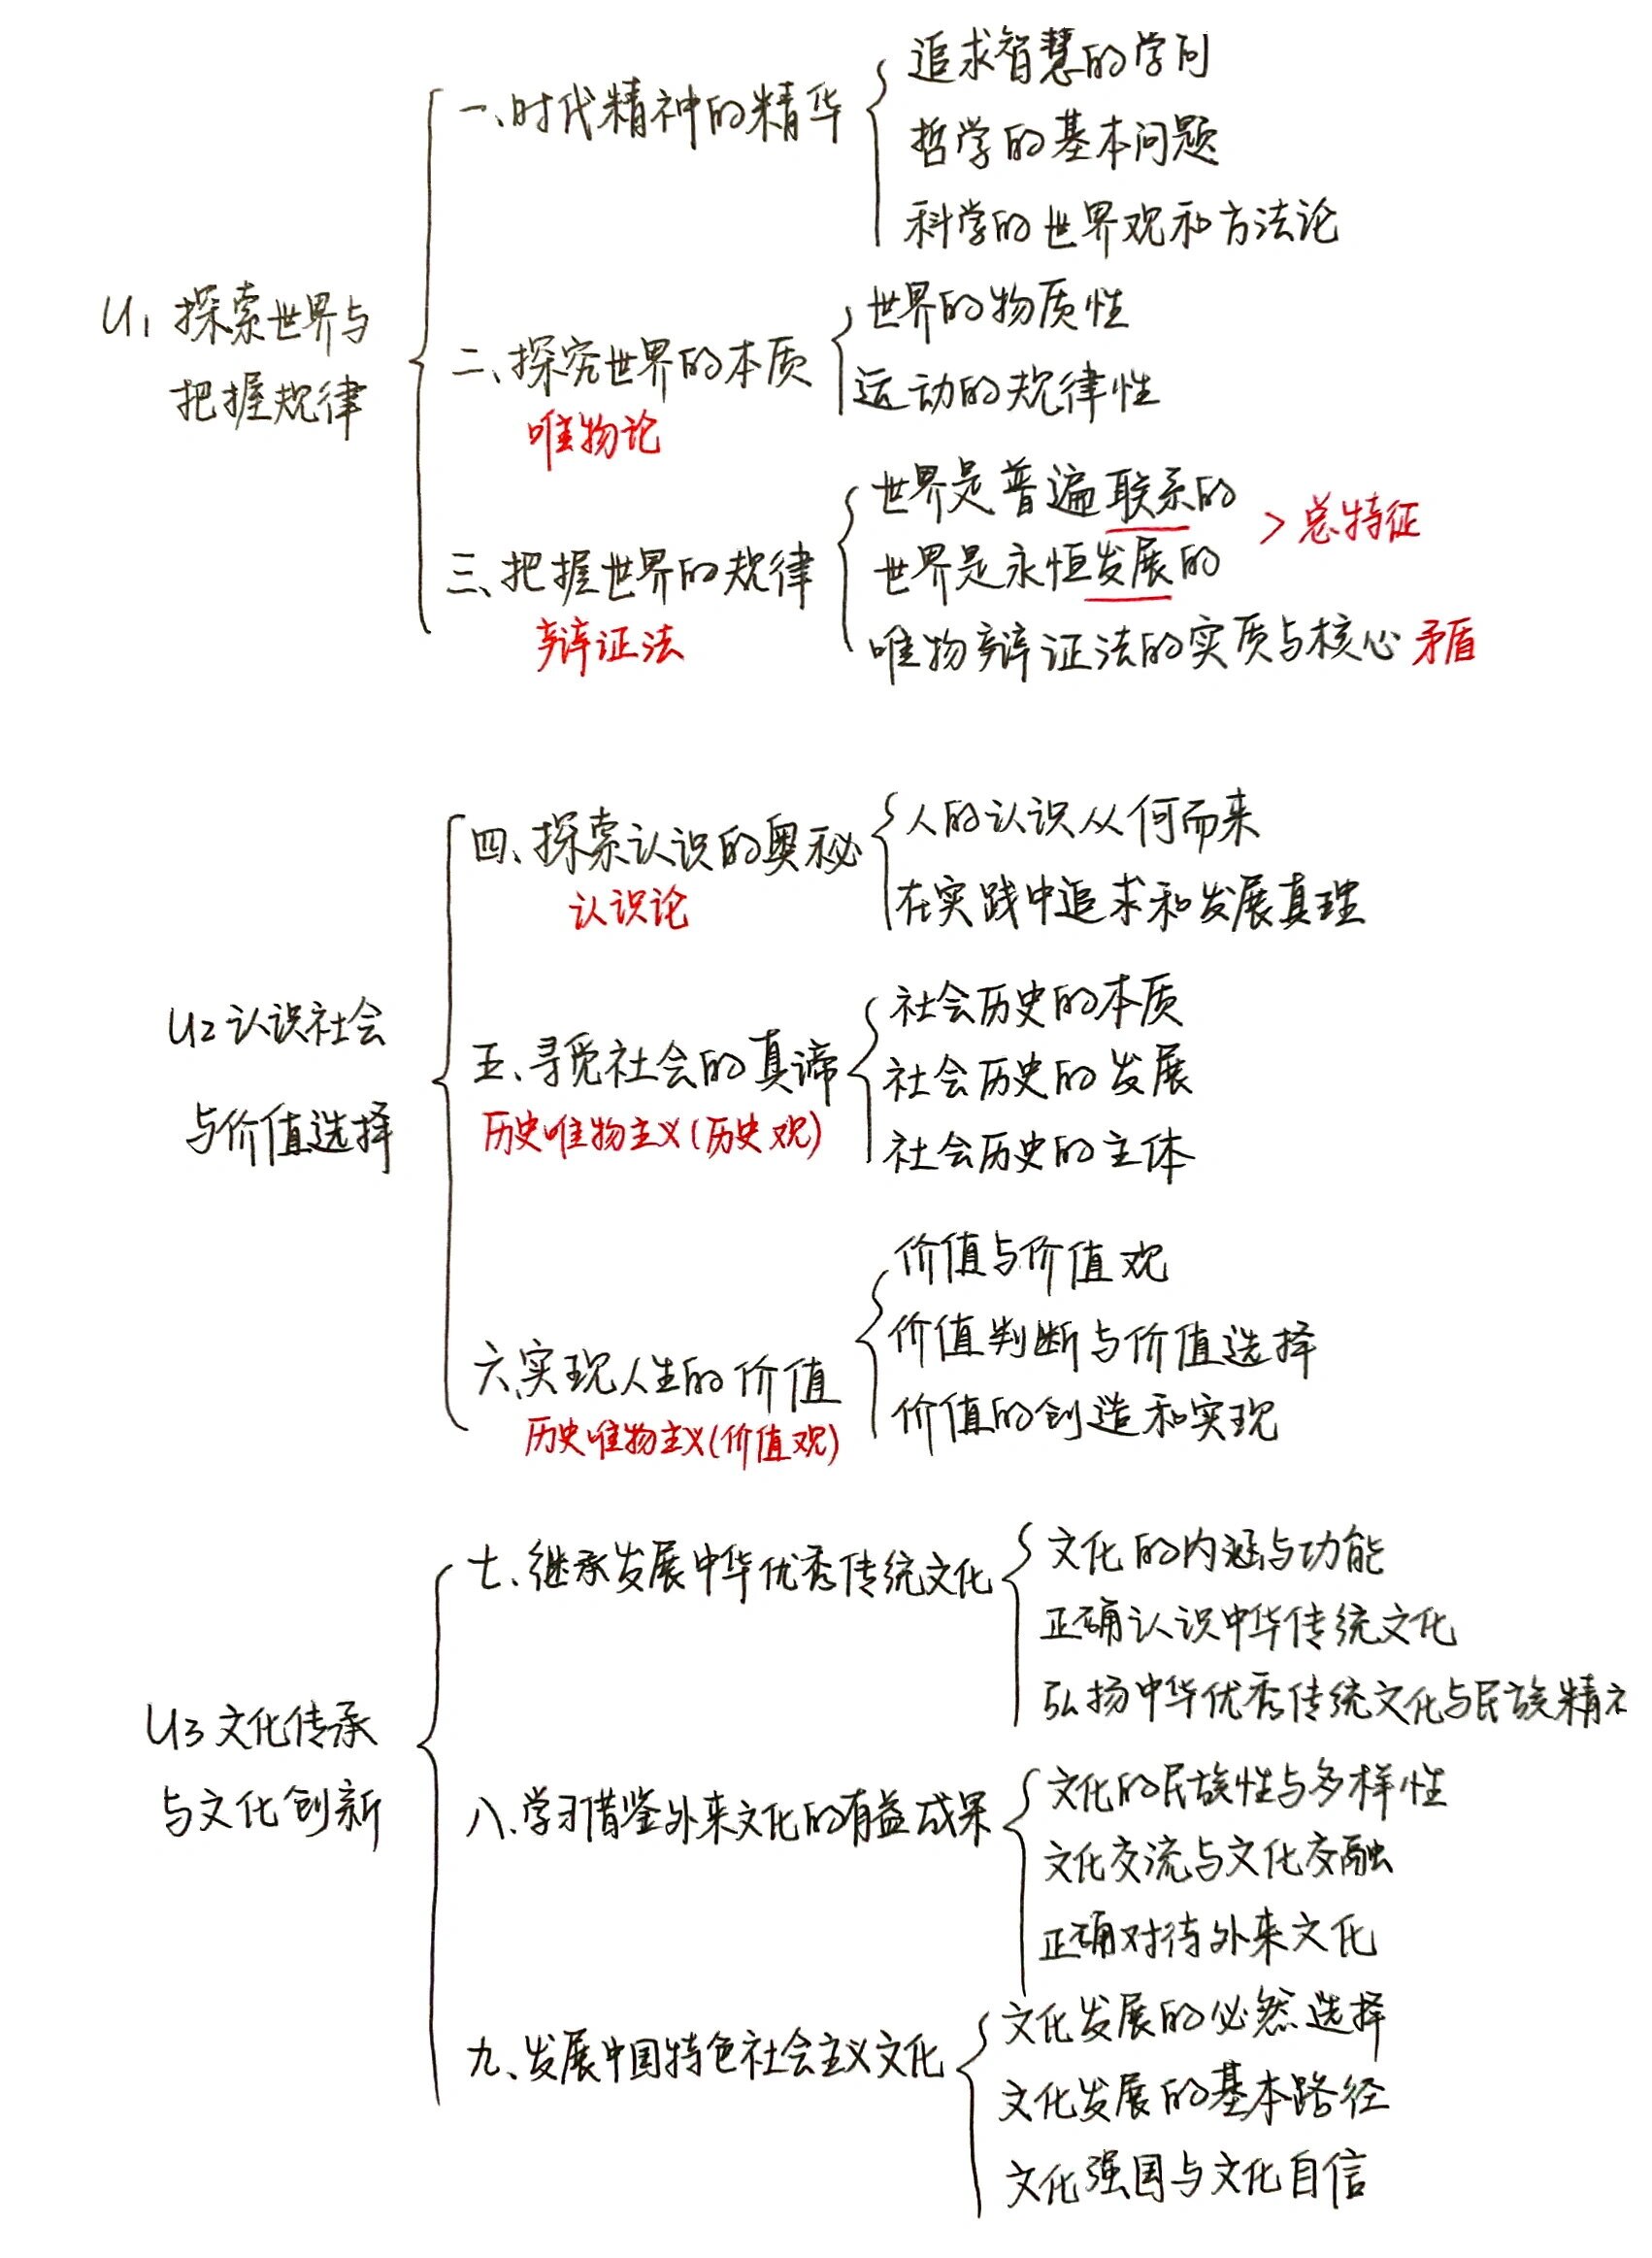 U1 探索世界与
把握规律
一、时代精神的精华
追求智慧的学问
哲学的基本问题
科学的世界观和方法论
二、探究世界的本质
唯物论
世界的物质性
运动的规律性
三、把握世界的规律
辩证法
世界是普遍联系的
世界是永恒发展的
>总特征
唯物辩证法的实质与核心 矛盾
U2 认识社会
与价值选择
四、探索认识的奥秘
认识论
人的认识从何而来
在实践中追求和发展真理
五、寻觅社会的真谛
历史唯物主义(历史观)
社会历史的本质
社会历史的发展
社会历史的主体
六、实现人生的价值
历史唯物主义(价值观)
价值与价值观
价值判断与价值选择
价值的创造和实现
U3 文化传承
与文化创新
七、继承发展中华优秀传统文化
文化的内涵与功能
正确认识中华传统文化
弘扬中华优秀传统文化与民族精
八、学习借鉴外来文化的有益成果
文化的民族性与多样性
文化交流与文化交融
正确对待外来文化
九、发展中国特色社会主义文化
文化发展的必然选择
文化发展的基本路径
文化强国与文化自信